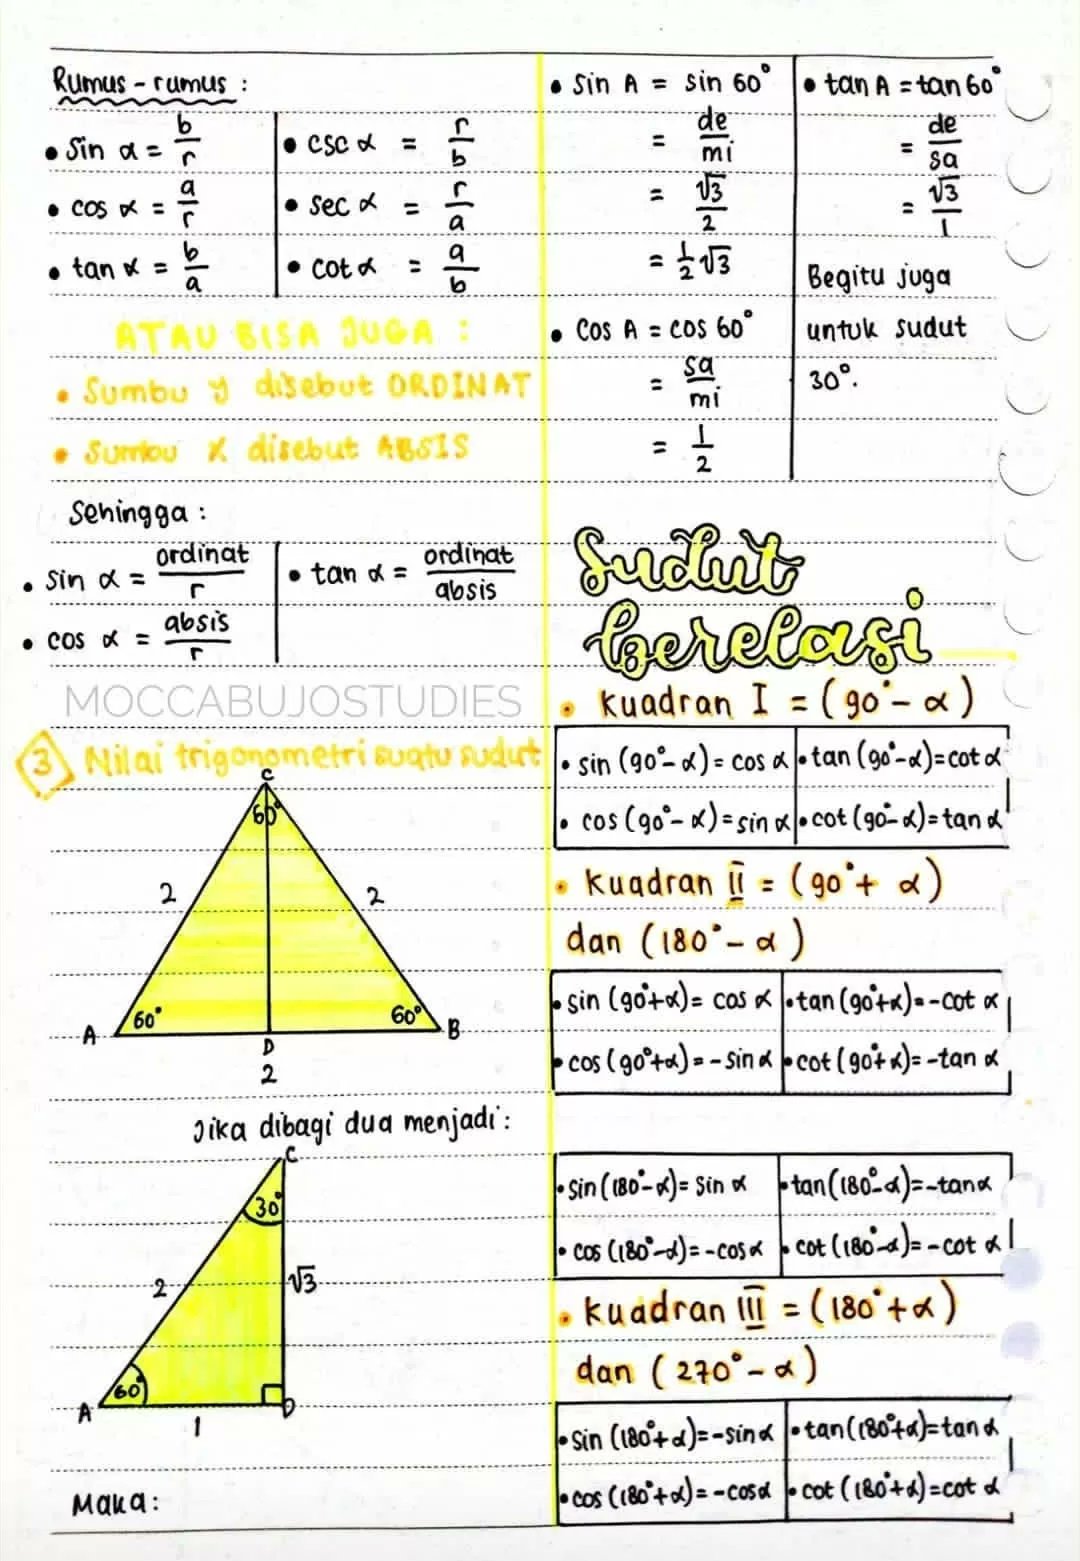 Rumus - rumus :
• sin α = b/r
• cos α = a/r
• tan α = b/a
• csc α = r/b
• sec α = r/a
• cot α = a/b
ATAU BISA JUGA :
• Sumbu y disebut ORDINAT
• Sumbu X disebut ABSIS
Sehingga :
• sin α = ordinat/r
• cos α = absis/r
• tan α = ordinat/absis
MOCCABUJOSTUDIES
3 Nilai trigonometri suatu sudut
C
60°
2
2
60°
60°
A
D
B
2
Jika dibagi dua menjadi :
C
30°
2
√3
60°
A
D
1
Maka :
• sin A = sin 60°
= de/mi
= √3/2
= 1/2 √3
• cos A = cos 60°
= sa/mi
= 1/2
• tan A = tan 60°
= de/sa
= √3/1
Begitu juga
untuk sudut
30°.
Sudut
berelasi
• kuadran I = (90° - α)
• sin (90° - α) = cos α
• cos (90° - α) = sin α
• tan (90° - α) = cot α
• cot (90° - α) = tan α
• kuadran II = (90° + α)
dan (180° - α)
• sin (90° + α) = cos α
• cos (90° + α) = - sin α
• tan (90° + α) = - cot α
• cot (90° + α) = - tan α
• sin (180° - α) = sin α
• cos (180° - α) = - cos α
• tan (180° - α) = - tan α
• cot (180° - α) = - cot α
• kuadran III = (180° + α)
dan (270° - α)
• sin (180° + α) = - sin α
• cos (180° + α) = - cos α
• tan (180° + α) = tan α
• cot (180° + α) = cot α